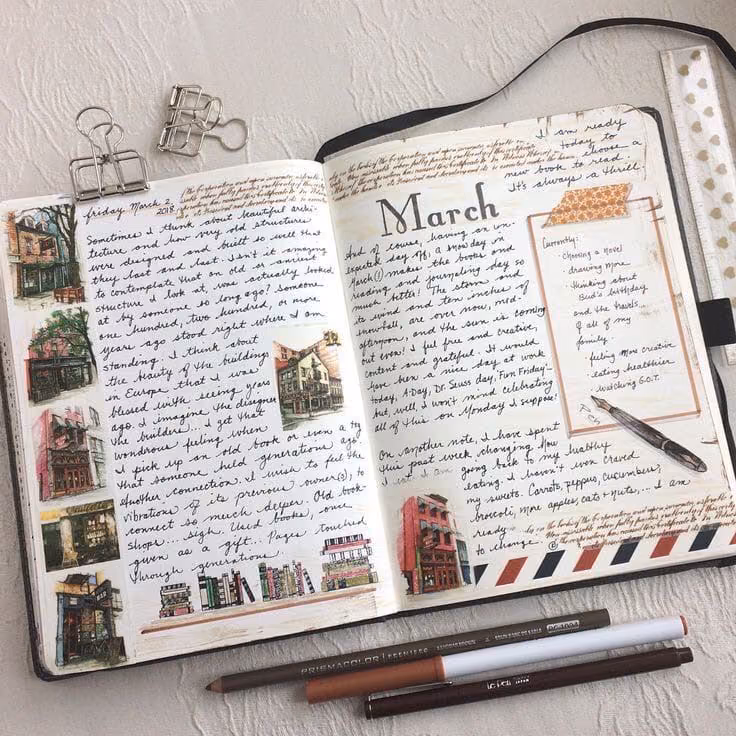 friday March 2, 2018
Sometimes I think about beautiful archi-
tecture and how very old structures
were designed and built so well that
they last and last. Isn't it amazing
to contemplate that an old or ancient
structure I look at, was actually looked
at by someone so long ago? Someone
one hundred, two hundred, or more
years ago stood right where I am
standing. I think about
the beauty of the buildings
in Europe that I was
blessed with seeing years
ago. I imagine the designer
the builder... I get that
wondrous feeling when
I pick up an old book or even a toy
that someone held generations ago.
Another connection. I wish to feel the
vibrations of its previous owner(s), to
connect so much deeper. Old book
shops.... sigh. Used books, once
given as a gift... Pages touched
through generations.
I am ready
today to
choose a
new book to read.
It's always a thrill.
March
And of course, having an un-
expected day off, a snow day on
March 1, makes the books and
reading and journaling day so
much better! The storm and
its wind and ten inches of
snowball, are over now, mid-
afternoon, and the sun is coming
out even! I feel free and creative,
content and grateful. It would
have been a nice day at work
today, A Day, Dr. Seuss day, "Fun Friday"-
but, well, I won't mind celebrating
all of this on Monday I suppose!
On another note, I have spent
this past week changing how
I eat. I am going back to my healthy
eating. I haven't even craved
my sweets. Carrots, peppers, cucumbers,
broccoli, more apples, cats + nuts,... I am
ready
to change.
Currently:
- choosing a novel
- drawing more
- thinking about
Bud's birthday
and the travels...
of all of my
family.
- feeling more creative
- eating healthier
- watching G.O.T.
PRISMACOLOR PREMIER